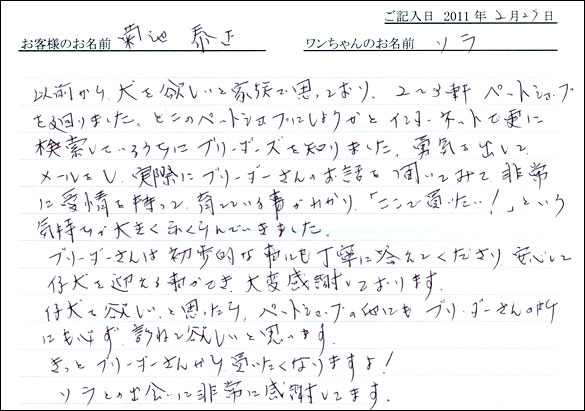 ご記入日 2011年2月27日
お客様のお名前 菊池 泰正 ワンちゃんのお名前 ソラ
以前から、犬を欲しいと家族で思っており、2~3軒 ペットショップ
を廻りました。どこのペットショップにしようかとインターネットで更に
検索しているうちにブリーダーズを知りました。勇気を出して、
メールをし、実際にブリーダーさんのお話を聞いてみて、非常
に愛情を持って、育てている事がわかり、「ここで買いたい!」という
気持ちが大きくふくらんでいきました。
ブリーダーさんは初歩的な事にも丁寧に答えてくださり 安心して
仔犬を迎える事ができ、大変感謝しております。
仔犬を欲しいと思ったら、ペットショップの他にもブリーダーさんの所
にも必ず 訪ねて欲しいと思います。
きっとブリーダーさんから買いたくなりますよ!
ソラとの出会いに非常に感謝してます。